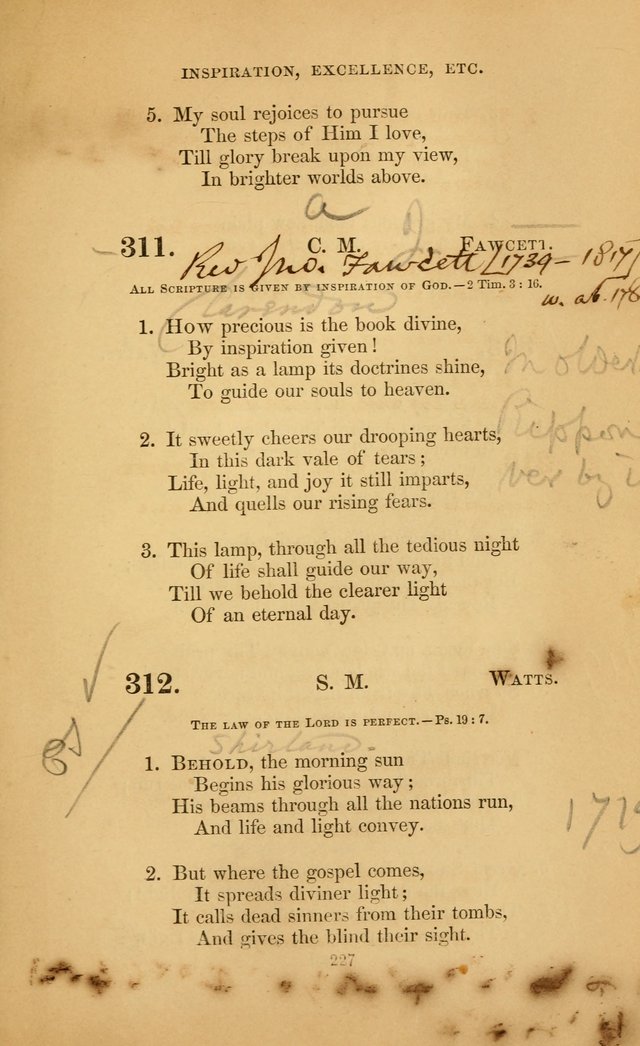 INSPIRATION, EXCELLENCE, ETC.
5. My soul rejoices to pursue
The steps of Him I love,
Till glory break upon my view,
In brighter worlds above.
a
311. C. M. FAWCETT.
Rev Jno. Fawcett 1739 - 1817
ALL SCRIPTURE IS GIVEN BY INSPIRATION OF GOD.—2 TIM. 3 : 16.
w. ab. 178
Clarendon
1. HOW precious is the book divine,
By inspiration given!
Bright as a lamp its doctrines shine,
To guide our souls to heaven.
In older
Rippon
ver by
2. It sweetly cheers our drooping hearts,
In this dark vale of tears;
Life, light, and joy it still imparts,
And quells our rising fears.
3. This lamp, through all the tedious night
Of life shall guide our way,
Till we behold the clearer light
Of an eternal day.
312. S. M. WATTS.
THE LAW OF THE LORD IS PERFECT.—PS. 19 : 7.
Shirland.
1. BEHOLD, the morning sun
Begins his glorious way;
His beams through all the nations run,
And life and light convey.
1719
2. But where the gospel comes,
It spreads diviner light;
It calls dead sinners from their tombs,
And gives the blind their sight.
227